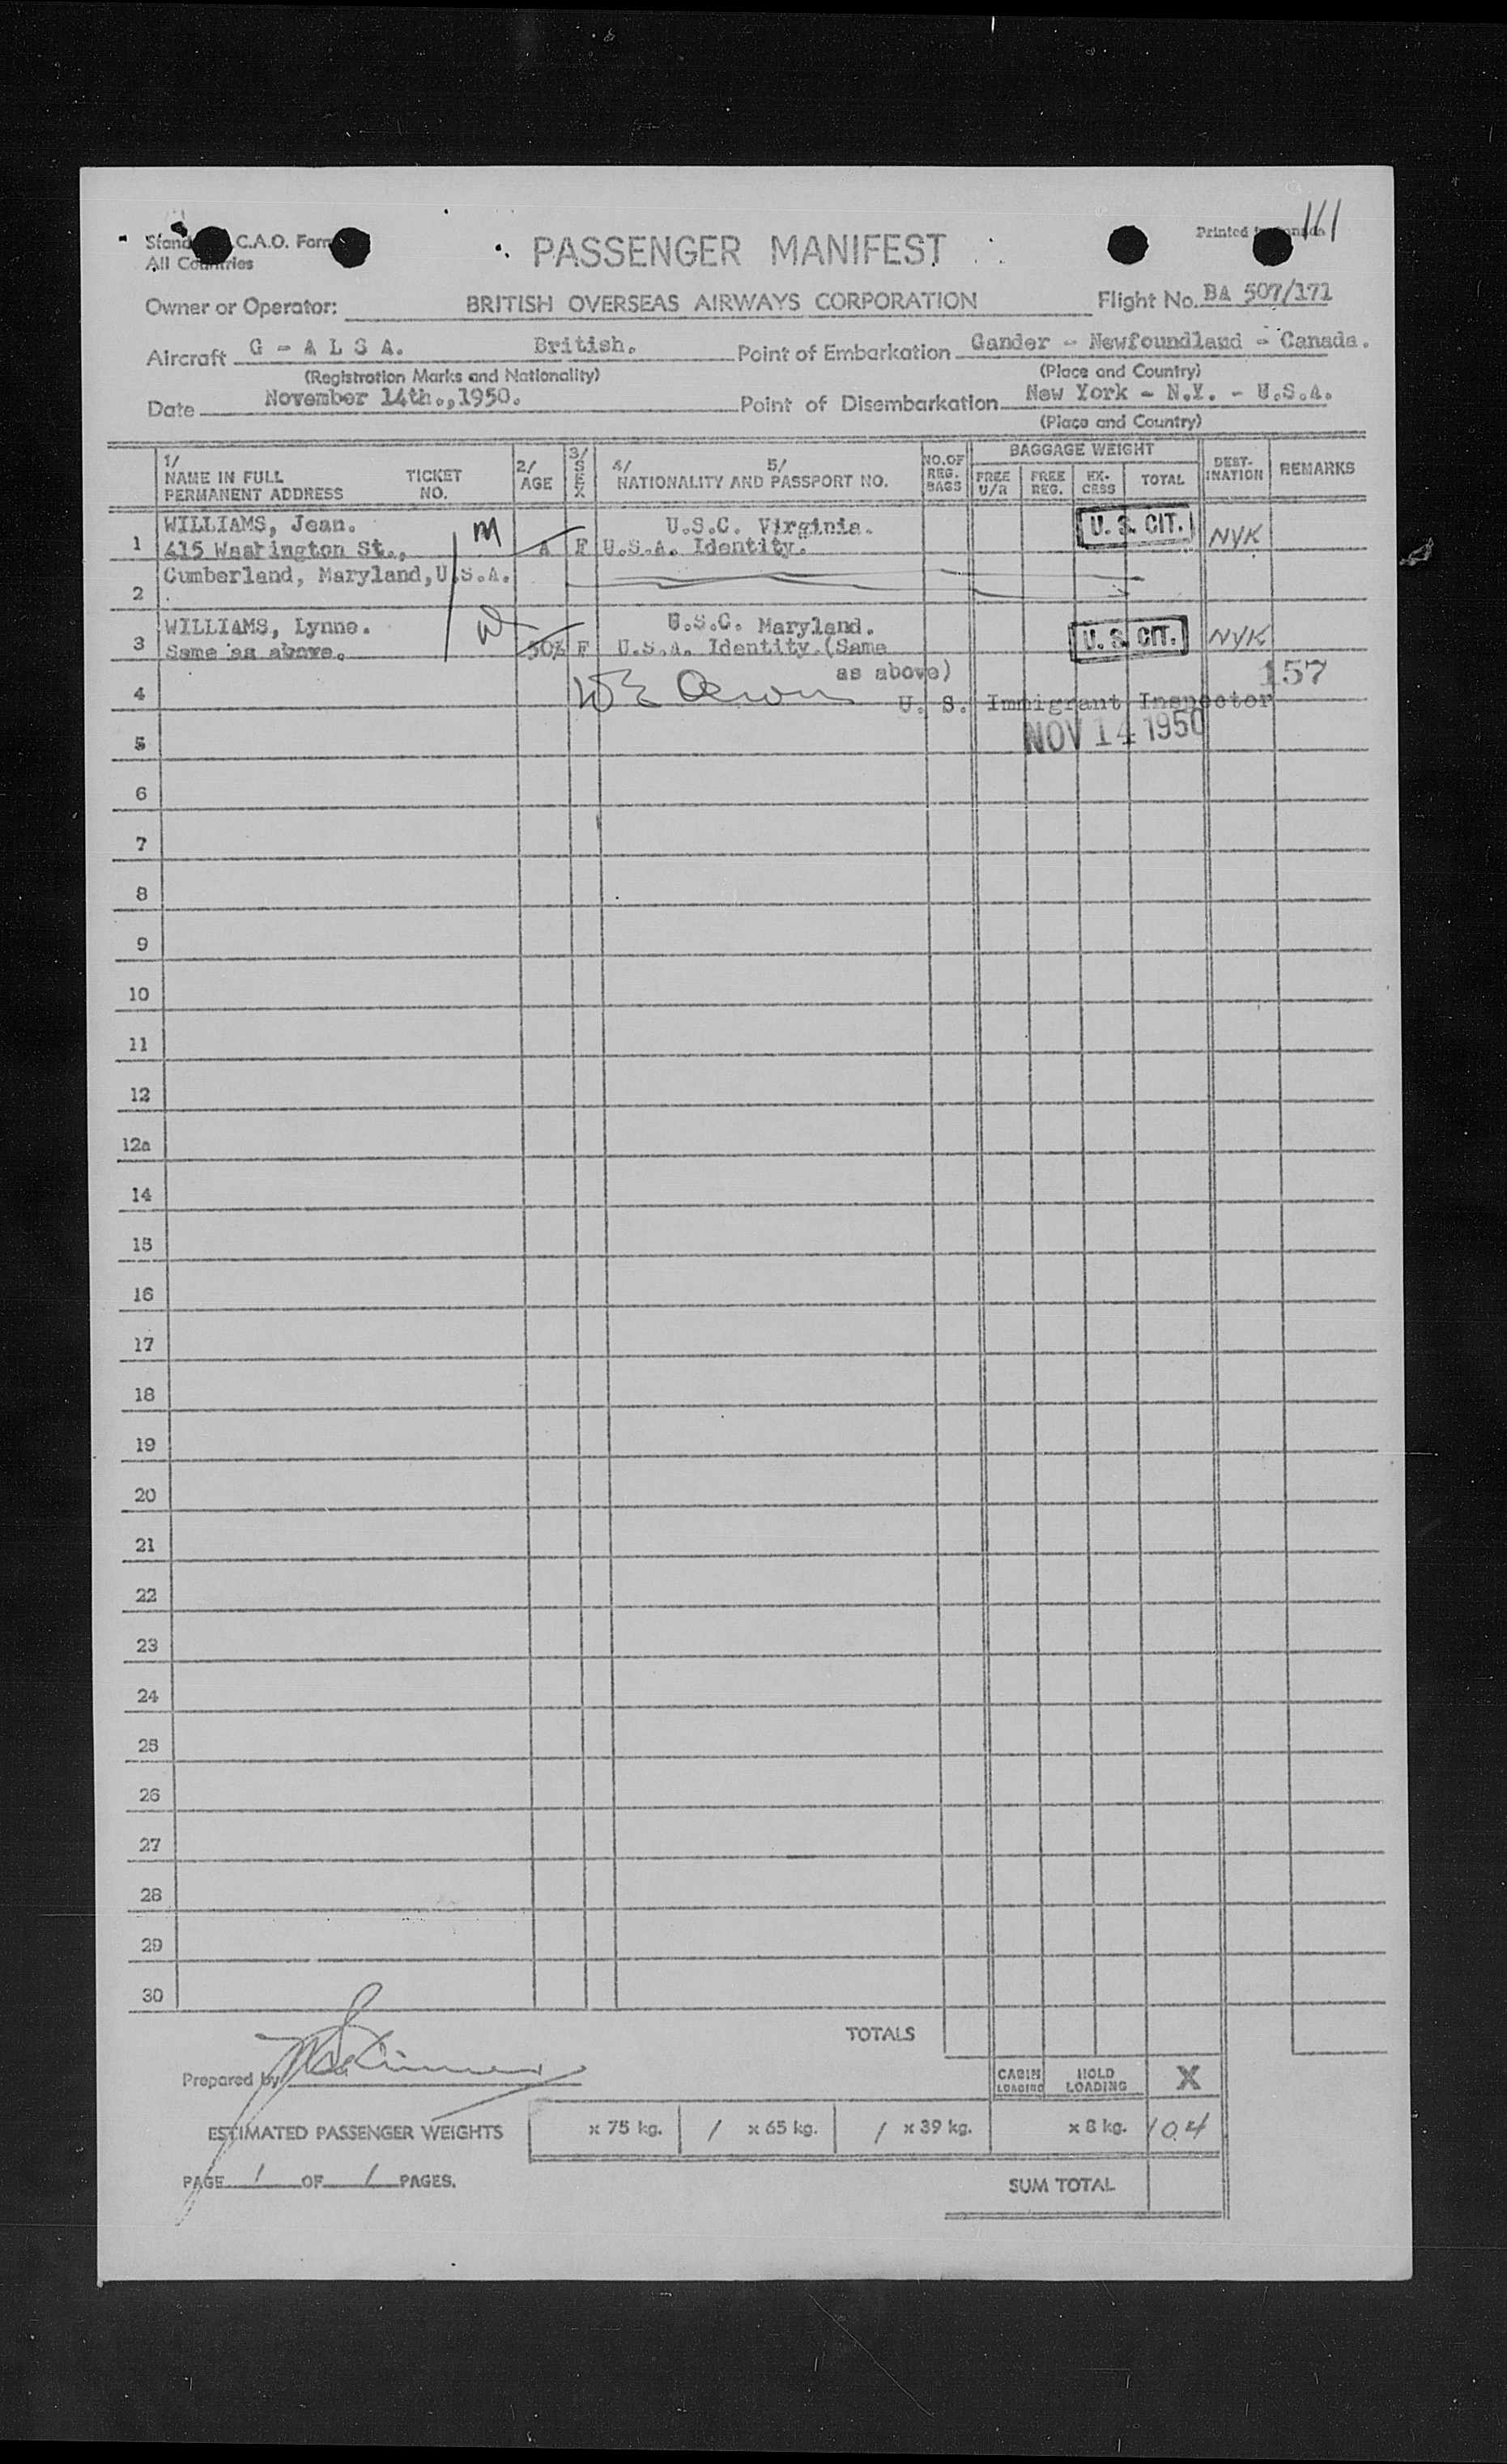 C.A.O. Form
All Countries
PASSENGER MANIFEST
Printed in Canada
161
Owner or Operator: BRITISH OVERSEAS AIRWAYS CORPORATION Flight No. BA 507/171
Aircraft G - A L S A. British. Point of Embarkation Gander - Newfoundland - Canada.
(Registration Marks and Nationality) (Place and Country)
Date November 14th.,1950. Point of Disembarkation New York - N.Y. - U.S.A.
(Place and Country)
1/ NAME IN FULL PERMANENT ADDRESS TICKET NO. 2/ AGE 3/ SEX 4/ 5/ NATIONALITY AND PASSPORT NO. NO.OF REG. BAGS BAGGAGE WEIGHT FREE U/R FREE REG. EX-CESS TOTAL DEST-INATION REMARKS
WILLIAMS, Jean. M U.S.C. Virginia. U. S. CIT.
1 415 Washington St., A F U.S.A. Identity. NYK
Cumberland, Maryland, U.S.A.
2
WILLIAMS, Lynne. U.S.C. Maryland.
3 Same as above. F U.S.A. Identity.(Same U. S. CIT. NYK
as above) 157
4 U. S. Immigrant Inspector
NOV 14 1950
5
6
7
8
9
10
11
12
12a
14
15
16
17
18
19
20
21
22
23
24
25
26
27
28
29
30
TOTALS
Prepared by
CABIN LOADING HOLD LOADING X
ESTIMATED PASSENGER WEIGHTS x 75 kg. / x 65 kg. / x 39 kg. x 8 kg. 104
PAGE 1 OF 1 PAGES.
SUM TOTAL